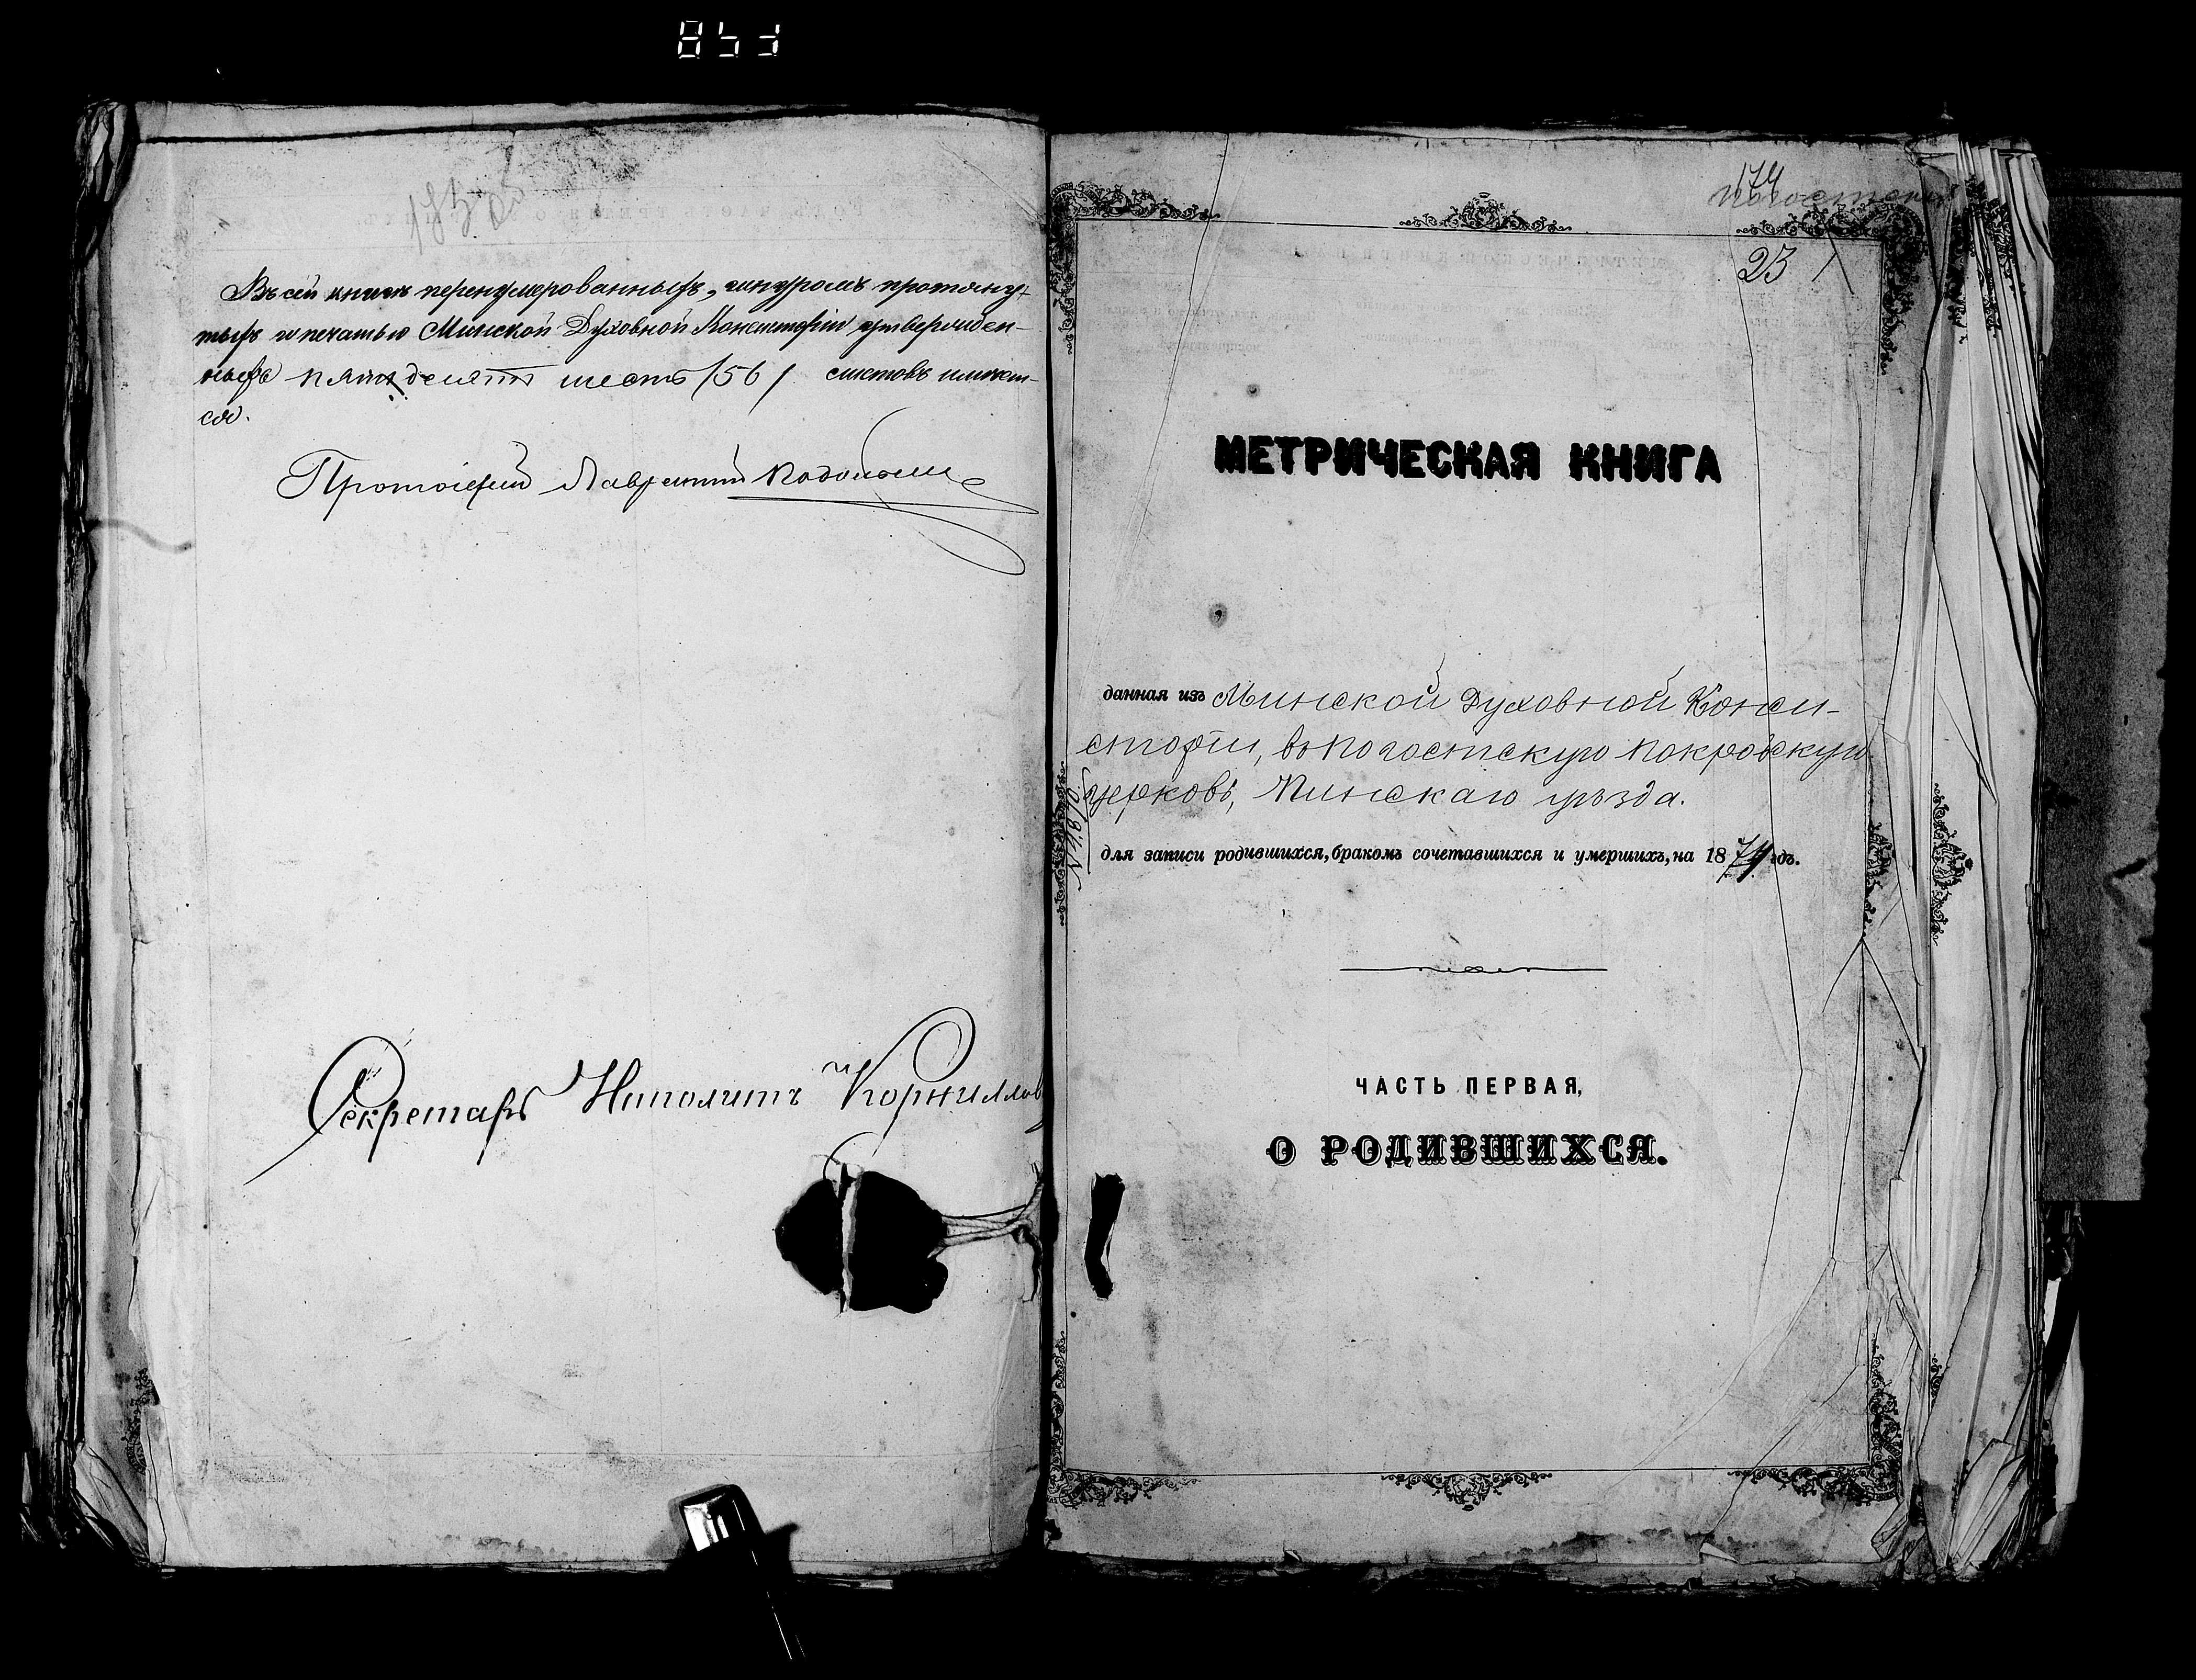 Въ сей книге перенумерованныхъ, шнуромъ протяну-
тыхъ и печатью Минской Духовной Консисторіи утвержден-
ныхъ пятьдесятъ шесть /56/ листовъ имеет-
ся.
Протоіерей Лаврентій
Секретарь Иполитъ Корнилловъ
174
Погостская
23
МЕТРИЧЕСКАЯ КНИГА
данная изъ Минской Духовной Конси-
сторіи, въ Погостскую Покровскую
церковь, Пинскаго уѣзда.
для записи родившихся, бракомъ сочетавшихся и умершихъ, на 1874 годъ.
ЧАСТЬ ПЕРВАЯ,
О РОДИВШИХСЯ.